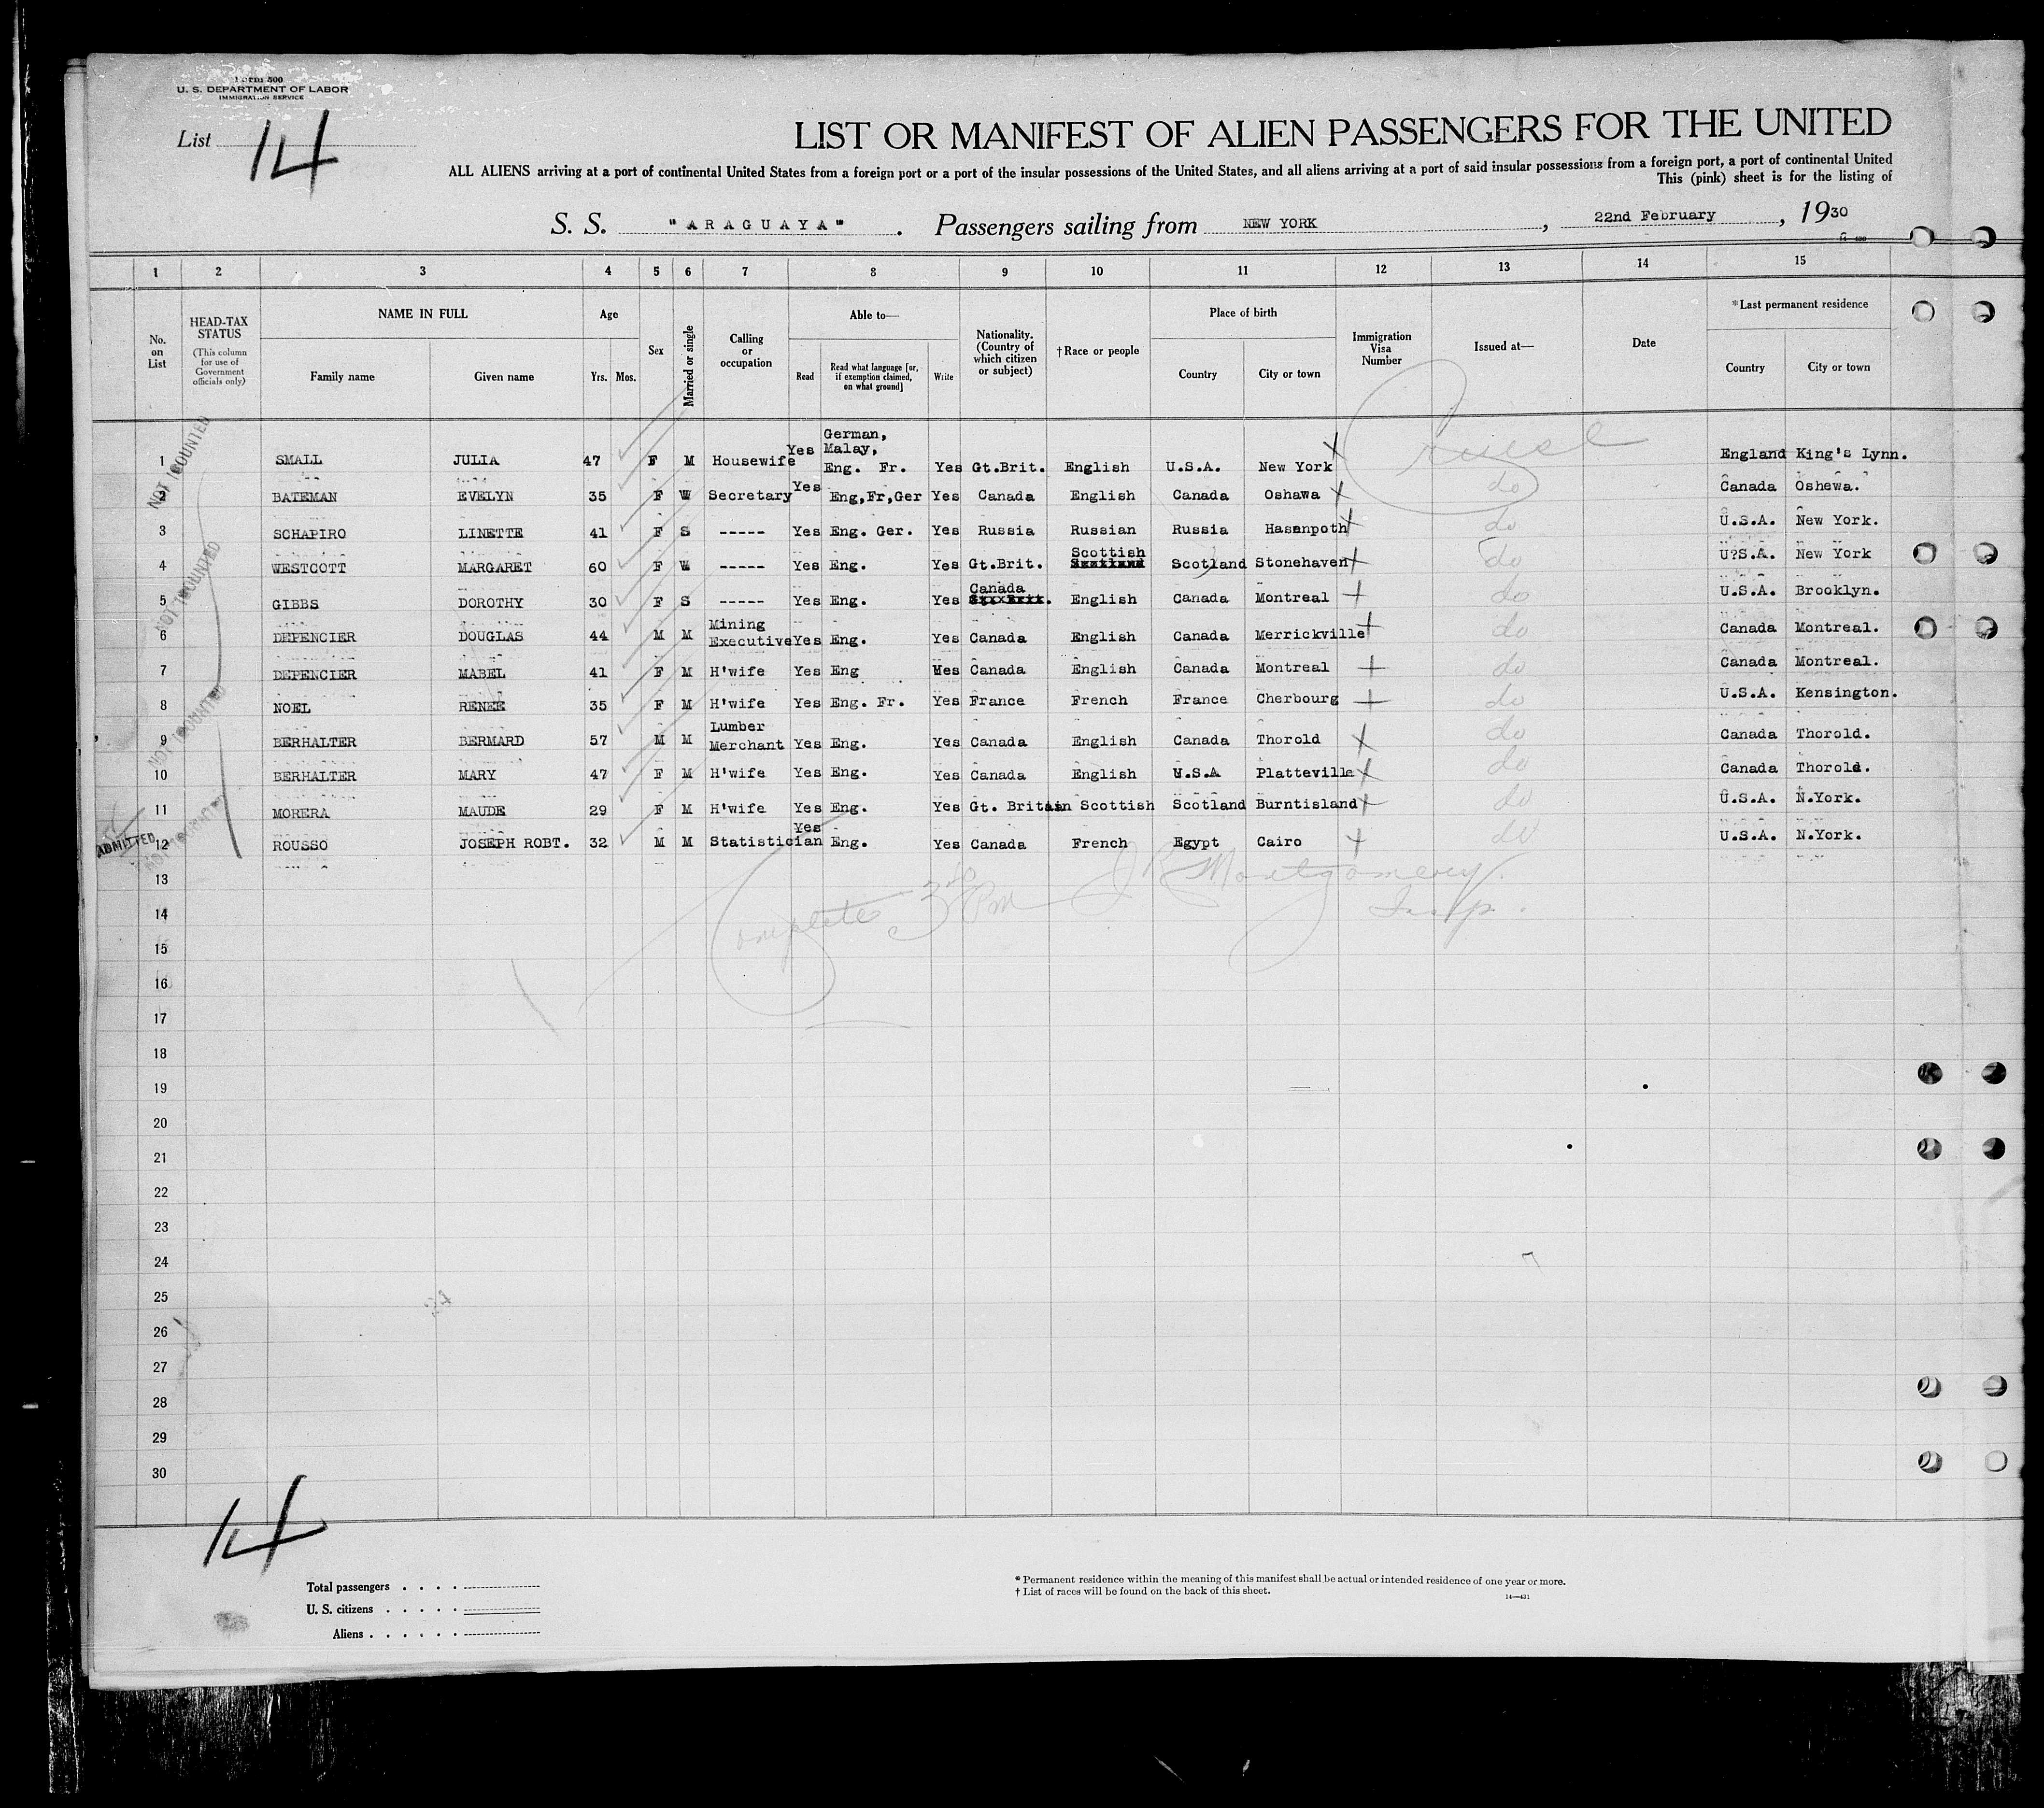 Form 500
U. S. DEPARTMENT OF LABOR
IMMIGRATION SERVICE
List 14
LIST OR MANIFEST OF ALIEN PASSENGERS FOR THE UNITED
ALL ALIENS arriving at a port of continental United States from a foreign port or a port of the insular possessions of the United States, and all aliens arriving at a port of said insular possessions from a foreign port, a port of continental United
This (pink) sheet is for the listing of
S. S. "ARAGUAYA". Passengers sailing from NEW YORK, 22nd February, 1930
1 2 3 4 5 6 7 8 9 10 11 12 13 14 15
No. on List
HEAD-TAX STATUS
(This column for use of Government officials only)
NAME IN FULL
Family name Given name
Age
Yrs. Mos.
Sex
Married or single
Calling or occupation
Able to—
Read
Read what language [or, if exemption claimed, on what ground]
Write
Nationality. (Country of which citizen or subject)
†Race or people
Place of birth
Country City or town
Immigration Visa Number
Issued at—
Date
*Last permanent residence
Country City or town
1 SMALL JULIA 47 F M Housewife Yes German, Malay, Eng. Fr. Yes Gt.Brit. English U.S.A. New York Cruise England King's Lynn.
2 BATEMAN EVELYN 35 F W Secretary Yes Eng,Fr,Ger Yes Canada English Canada Oshawa do Canada Oshewa.
3 SCHAPIRO LINETTE 41 F S ----- Yes Eng. Ger. Yes Russia Russian Russia Hasenpoth do U.S.A. New York.
4 WESTCOTT MARGARET 60 F W ----- Yes Eng. Yes Gt.Brit. Scottish Scotland Stonehaven do U?S.A. New York
5 GIBBS DOROTHY 30 F S ----- Yes Eng. Yes Canada English Canada Montreal do U.S.A. Brooklyn.
6 DEPENCIER DOUGLAS 44 M M Mining Executive Yes Eng. Yes Canada English Canada Merrickville do Canada Montreal.
7 DEPENCIER MABEL 41 F M H'wife Yes Eng Yes Canada English Canada Montreal do Canada Montreal.
8 NOEL RENEE 35 F M H'wife Yes Eng. Fr. Yes France French France Cherbourg do U.S.A. Kensington.
9 BERHALTER BERMARD 57 M M Lumber Merchant Yes Eng. Yes Canada English Canada Thorold do Canada Thorold.
10 BERHALTER MARY 47 F M H'wife Yes Eng. Yes Canada English U.S.A Platteville do Canada Thorold.
11 MORERA MAUDE 29 F M H'wife Yes Eng. Yes Gt. Britain Scottish Scotland Burntisland do U.S.A. N.York.
12 ROUSSO JOSEPH ROBT. 32 M M Statistician Yes Eng. Yes Canada French Egypt Cairo do U.S.A. N.York.
NOT COUNTED
NOT COUNTED
NOT COUNTED
NOT COUNTED
ADMITTED
Complete 3 PM J R Montgomery.
Insp.
13
14
15
16
17
18
19
20
21
22
23
24
25
26
27
28
29
30
14
Total passengers
U. S. citizens
Aliens
* Permanent residence within the meaning of this manifest shall be actual or intended residence of one year or more.
† List of races will be found on the back of this sheet.
14—431